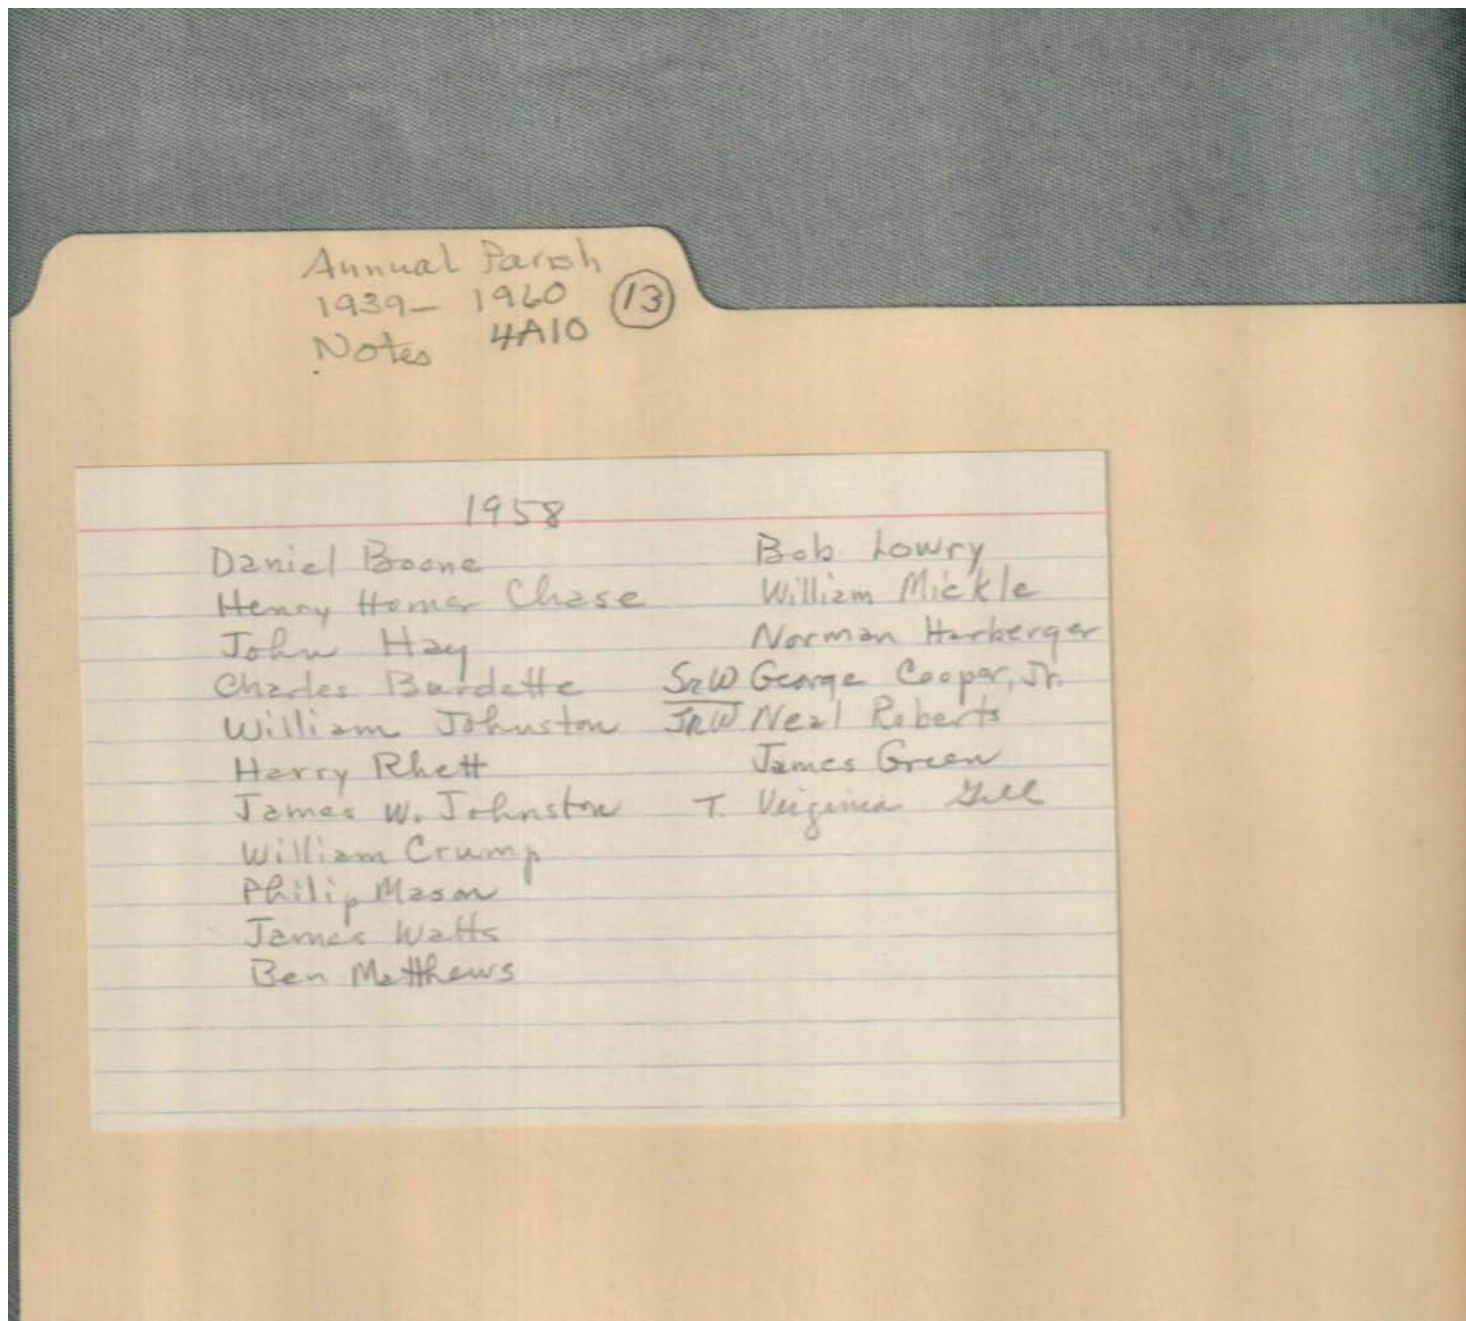 Annual Parish
1939- 1960 13
Notes 4A10
1958
Daniel Boone
Henry Homer Chase
John Hay
Charles Burdette
William Johnston
Harry Rhett
James W. Johnston
William Crump
Philip Mason
James Watts
Ben Matthews
Bob Lowry
William Mickle
Norman Harberger
SRW George Cooper, Jr.
JRW Neal Roberts
James Green
T. Virginia Gill